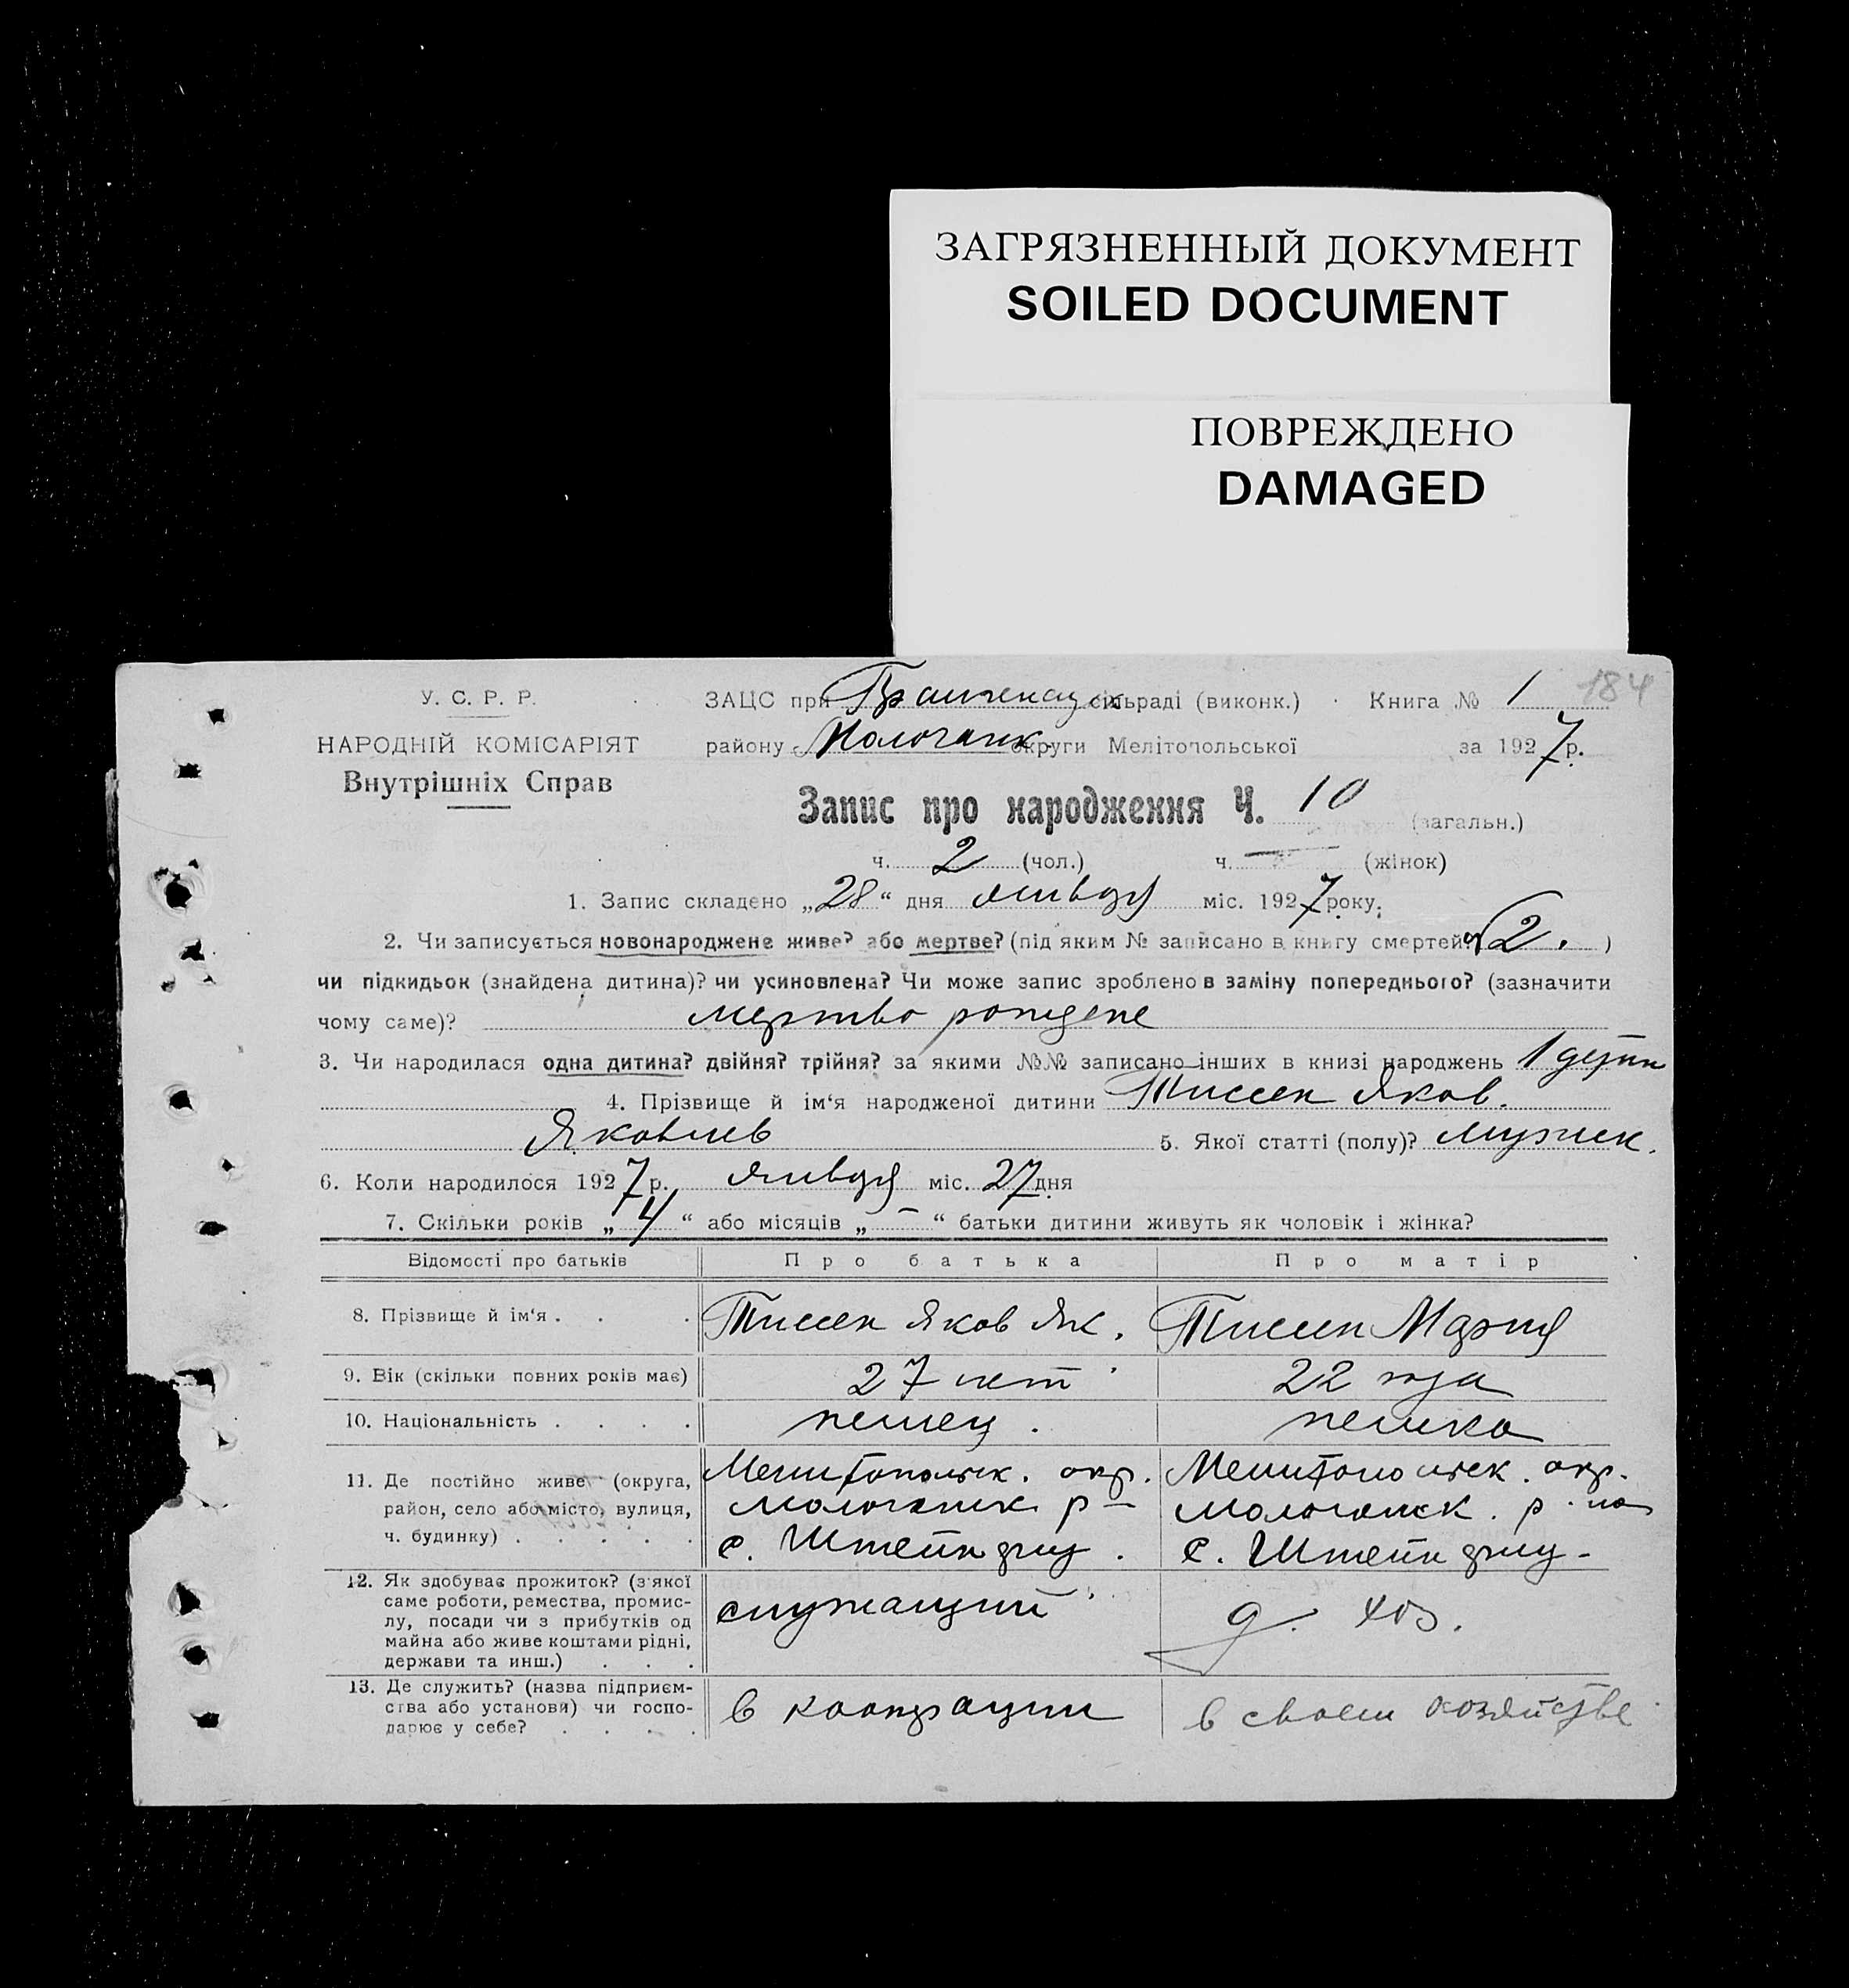 ЗАГРЯЗНЕННЫЙ ДОКУМЕНТ
SOILED DOCUMENT
ПОВРЕЖДЕНО
DAMAGED
184
У. С. Р. Р.
НАРОДНІЙ КОМІСАРІЯТ
Внутрішніх Справ
ЗАЦС при сільраді (виконк.) Книга № 1
району Молочанк. округи Мелітопольської за 1927 р.
Запис про народження Ч. 10 (загальн.)
ч. 2 (чол.) ч. — (жінок)
1. Запис складено „28“ дня января міс. 1927 року.
2. Чи записується новонароджене живе? або мертве? (під яким № записано в книгу смертей № 2. )
чи підкидьок (знайдена дитина)? чи усиновлена? Чи може запис зроблено в заміну попереднього? (зазначити
чому саме)? мертво рождене
3. Чи народилася одна дитина? двійня? трійня? за якими №№ записано інших в книзі народжень 1 детин
4. Прізвище й ім‘я народженої дитини Тиссен Яков.
Яковлев 5. Якої статті (полу)? мужск.
6. Коли народилося 1927 р. января міс. 27 дня
7. Скільки років „4“ або місяців „—“ батьки дитини живуть як чоловік і жінка?
Відомості про батьків Про батька Про матір
8. Прізвище й ім‘я . . . Тиссен Яков Як. Тиссен Мария
9. Вік (скільки повних років має) 27 лет 22 года
10. Національність . . . . немец. немка
11. Де постійно живе (округа, район, село або місто, вулиця, ч. будинку) . . . . .
Мелитопольск. окр. Мелитопольск. окр.
Молочанск р– Молочанск. р-на
с. Штейнфиц. с. Штейнфиц.
12. Як здобуває прожиток? (з якої
саме роботи, ремества, промис-
лу, посади чи з прибутків од
майна або живе коштами рідні,
держави та инш.) . . .
служащий д. хоз.
13. Де служить? (назва підприєм-
ства або установи) чи госпо-
дарює у себе? . . . .
в кооперации в своем хозяйстве